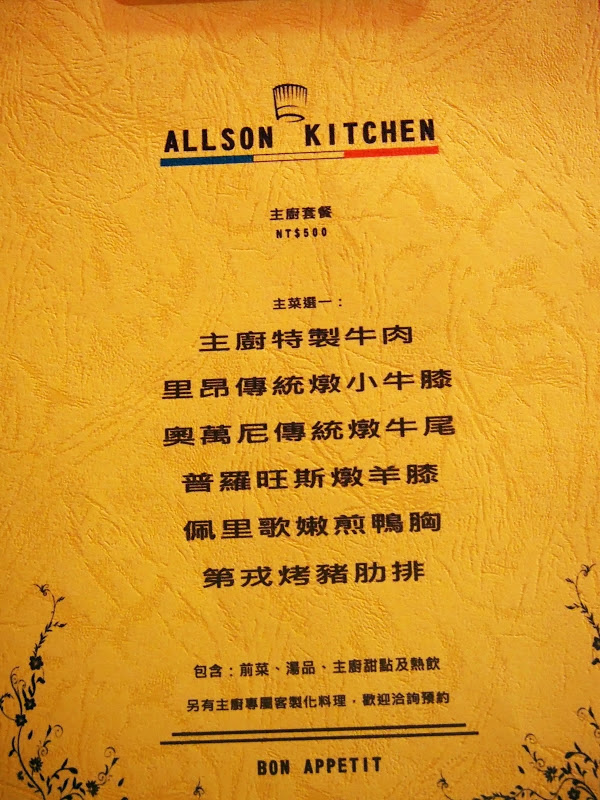 ALLSON KITCHEN
主廚套餐
NT$500
主菜選一：
主廚特製牛肉
里昂傳統燉小牛膝
奧萬尼傳統燉牛尾
普羅旺斯燉羊膝
佩里歌嫩煎鴨胸
第戎烤豬肋排
包含：前菜、湯品、主廚甜點及熱飲
另有主廚專屬客製化料理，歡迎洽詢預約
BON APPETIT